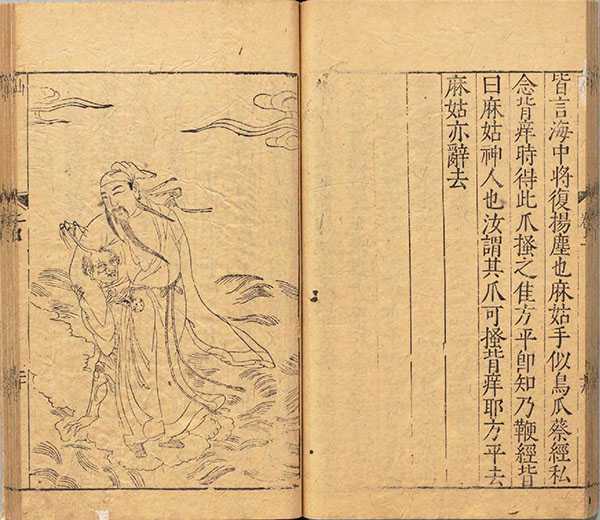 皆言海中將復揚塵也麻姑手似鳥爪蔡經私
念背痒時得此爪搔之佳方平即知乃鞭經背
曰麻姑神人也汝謂其爪可搔背痒耶方平去
麻姑亦辭去